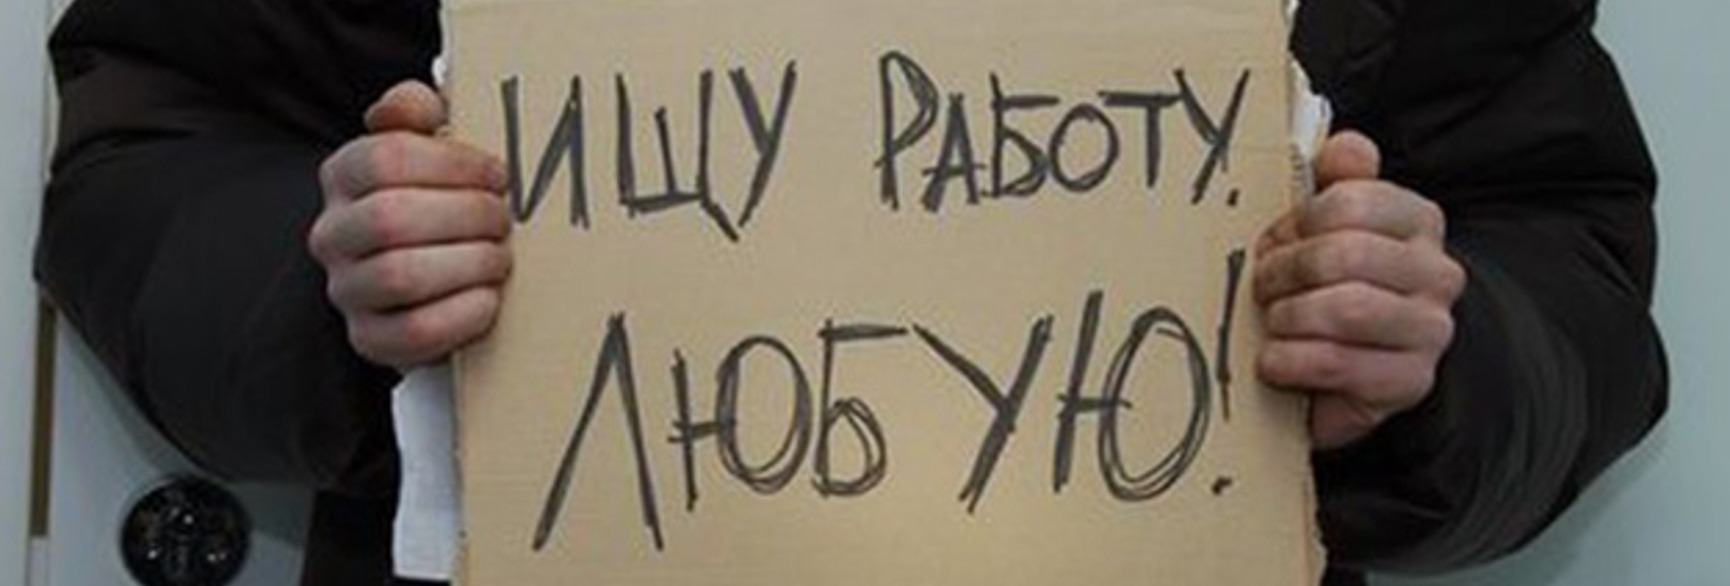 ИЩУ РАБОТУ.
ЛЮБУЮ!